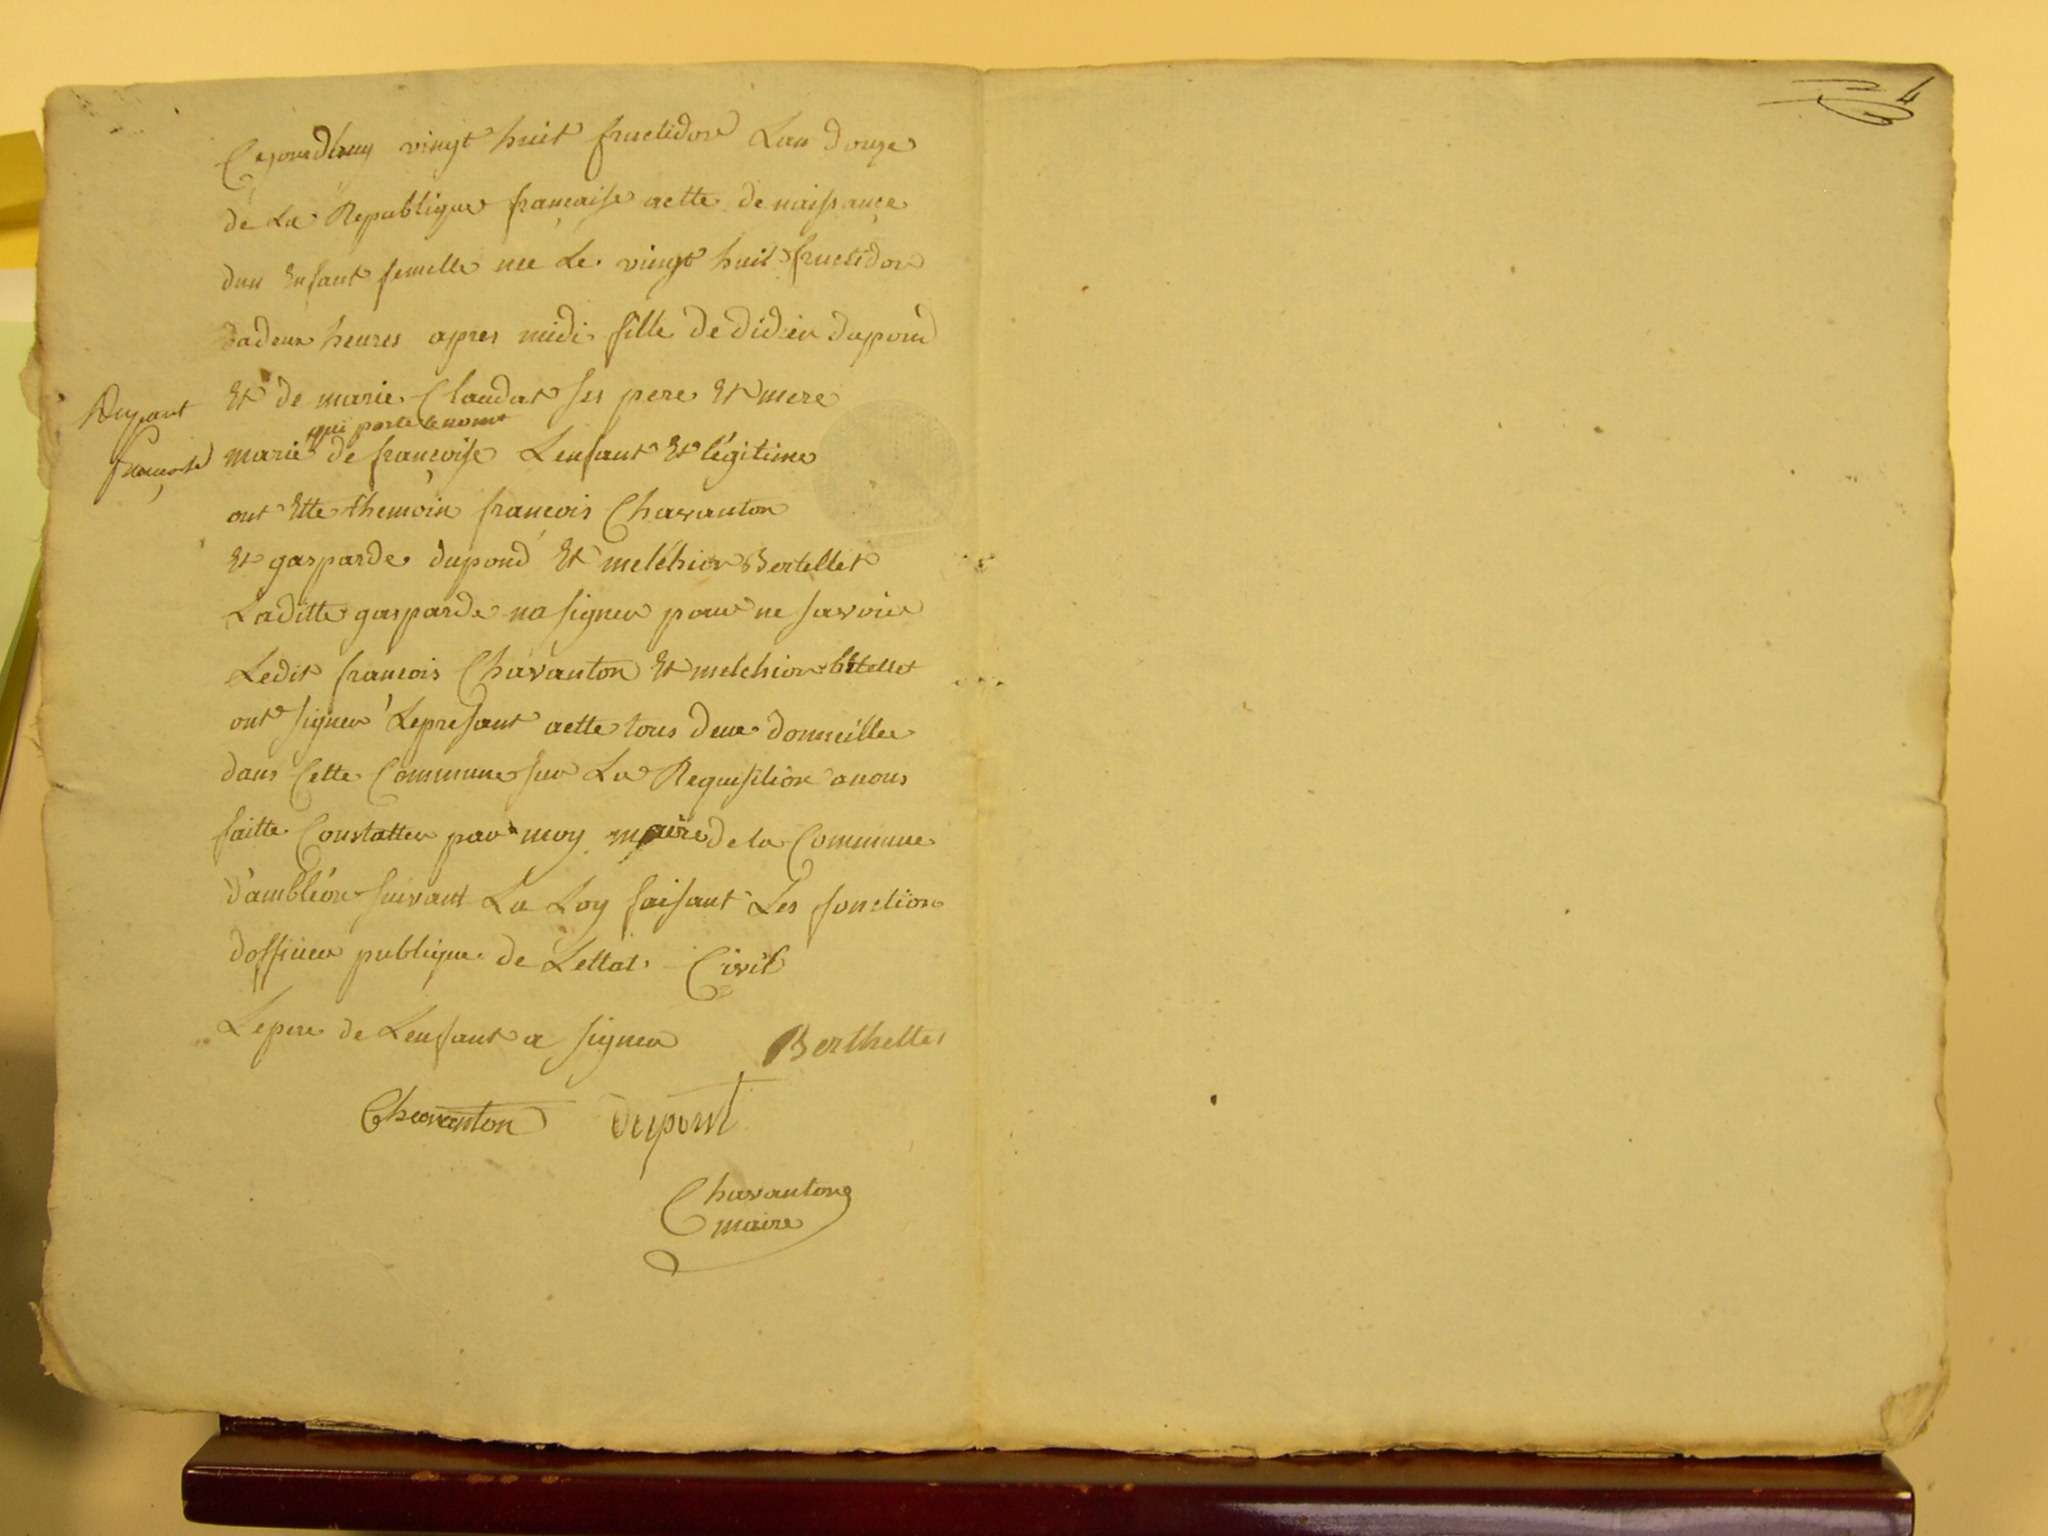 4
Cejourdhuy vingt huit fructidor Lan douze
de La Republique francaise actte de naissance
dun Enfant femelle née Le vingt huit fructidor
a deux heures apres midi fille de didier dupond
Et de marie Claudat ses pere Et mere
qui porte le nom
marié de françoise Lenfant Et légitime
Dupont
françoise
ont Ette themoin francois Chavanton
Et gasparde dupond Et melchior Bertellet
Laditte gasparde na signer pour ne savoir
Ledit francois Chavanton Et melchior betellet
ont signer Lepresant actte tous deux domeillee
dans Cette Commune sur La Requisition a nous
faitte Constatter par moy maire de la Commune
d'ambléon suivant La Loy faisant Les fonction
dofficier publique de Lettat Civil
Lepere de Lenfant a signer
Berthellet
Chavanton dupont
Chavanton
maire